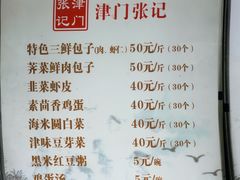 津门张记
津门张记
特色三鲜包子(肉、虾仁) 50元/斤(30个)
荠菜鲜肉包子 50元/斤(30个)
韭菜虾皮 40元/斤(30个)
素茴香鸡蛋 40元/斤(30个)
海米圆白菜 40元/斤(30个)
津味豆芽菜 40元/斤(30个)
黑米红豆粥 5元/碗
鸡蛋汤 5元/碗